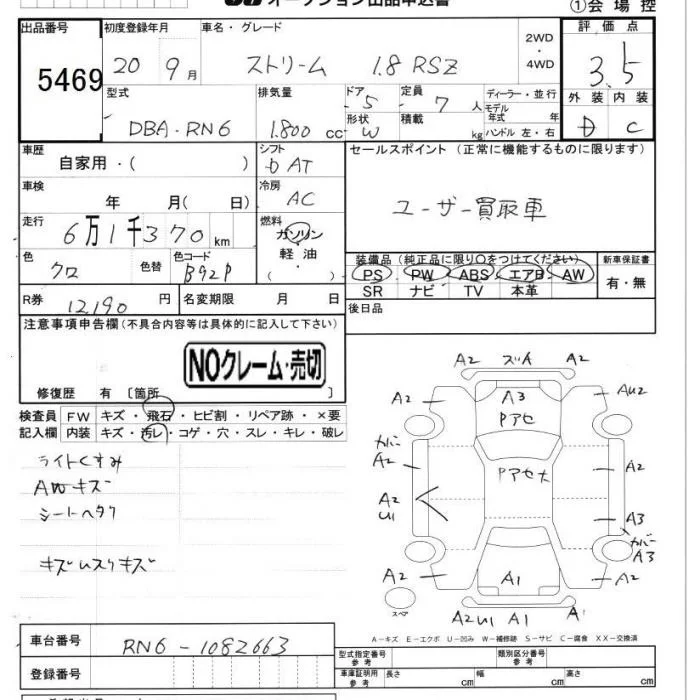 オークション出品申込書
①会場控
出品番号 5469
初度登録年月 20 9月
車名・グレード ストリーム 1.8 RSZ
2WD・4WD
評価点 3.5
外装 D 内装 C
型式 DBA-RN6
排気量 1.800 cc
ドア 形状 5 W
定員 7人
積載 kg
ディーラー・並行
モデル年式 年
ハンドル 左・右
車歴 自家用・( )
シフト DAT
セールスポイント (正常に機能するものに限ります)
ユーザー買取車
車検 年 月( 日)
冷房 AC
走行 6万1千370km
燃料 ガソリン 軽油 ・ ( )
色 クロ 色替
色コード B92P
装備品 (純正品に限り○をつけてください)
PS PW ABS エアB AW
SR ナビ TV 本革
新車保証書 有・無
R券 12190円
名変期限 月 日
後日品
注意事項申告欄(不具合内容等は具体的に記入して下さい)
NOクレーム・売切
修復歴 有 〔箇所 〕
検査員記入欄
FW キズ・飛石・ヒビ割・リペア跡・×要
内装 キズ・汚レ・コゲ・穴・スレ・キレ・破レ
ライトくすみ
AWキズ
シートヘタリ
キズムスリキズ
A2 ズレA A2
A2 A3 AU2
Pアセ
カバー A2 A2
Pアセ大
A2 U1
A3
カバー A3
A2 A1 A2
スペア
A2U1 A1 A1
A-キズ E-エクボ U-凹み W-補修跡 S-サビ C-腐食 XX-交換済
車台番号 RN6-1082663
登録番号
型式指定番号 参考
類別区分番号 参考
車庫証明用 参考 長さ cm 幅 cm 高さ cm